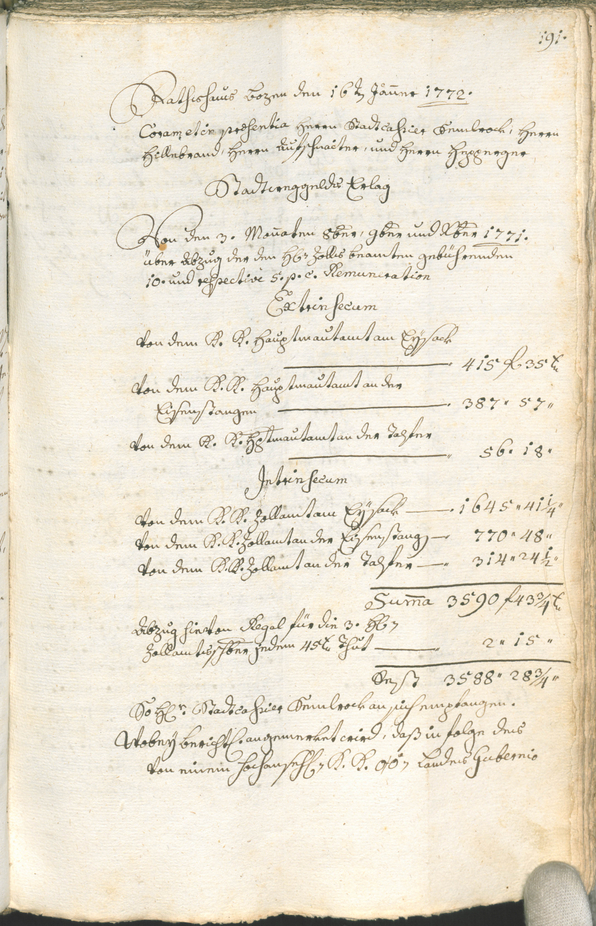 191.
Rathshaus Bozen den 16ten Jänner 1772.
Coram et in praesentia Herrn Stadtcassier Kemlrock, Herrn
Hillebrand, Herrn Aufschnaiter, und Herrn Hepperger
Stadtweggelds Erlag
Von den 3. Monaten 8ber, 9ber und Xber 1771.
über Abzug der den H: Zolls beamten gebührenden
10. und respective 5. p. c. Remuneration
Extrinsecum
Von dem K. K. Hauptmautamt am Eysack
415 f. 35 x
Von dem K. K. Hauptmautamt an der
Eisenstangen 387 " 57 "
Von dem K. K. Hptmautamt an der Talfer
56 " 18 "
Intrinsecum
Von dem K. K. Zollamt am Eysack 1645 " 41 1/4
Von dem K. K. Zollamt an der Eysenstang 770 " 48 "
Von dem K. K. Zollamt an der Talfer 314 " 24 1/2 "
Summa 3590 f 43 3/4 x
Abzug hievon Regal für die 3. H:
Zollamts jedem 45 x thut 2 " 15 "
Rest 3588 " 28 3/4 "
So H: Stadtcassier Kemlrock an sich empfangen.
Wobey berichtl: angemerket wird, daß in folge des
Von einem hochansehl: K. K. OÖ: Landes Gubernio